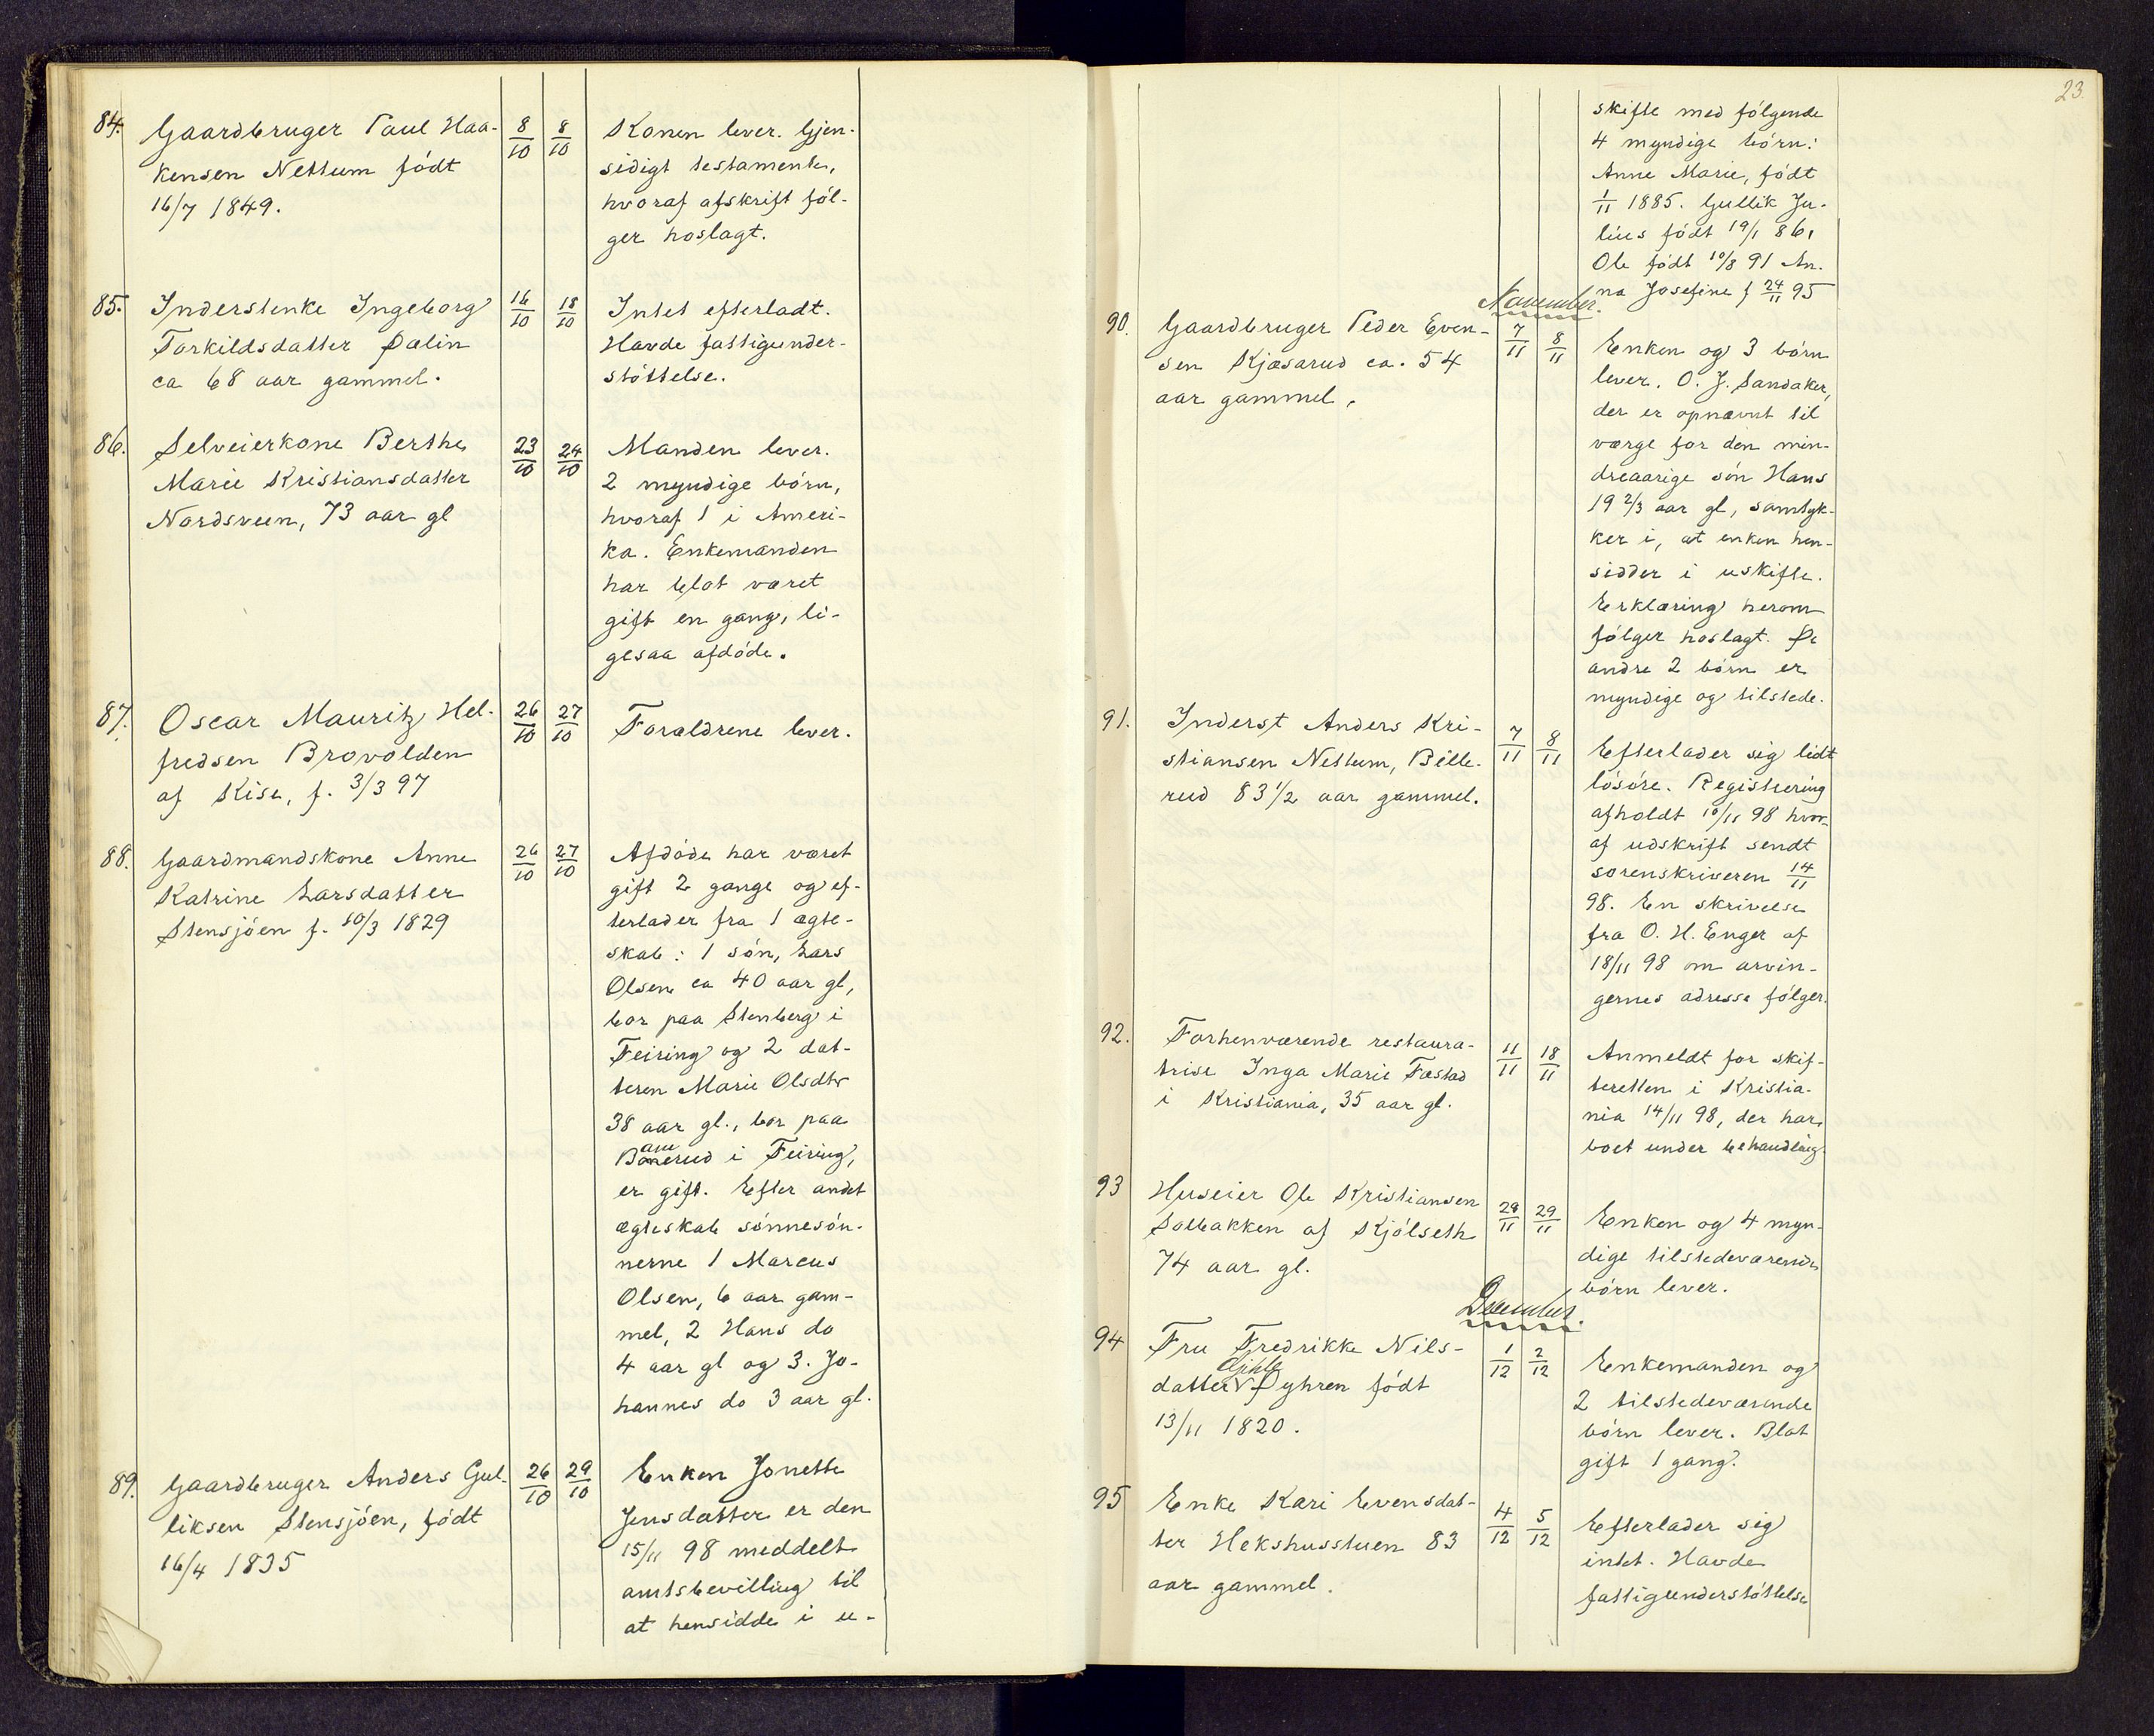 84. Gaardbruger Paul Haa-
kensen Nettum födt
16/7 1849.
8/10 8/10
Konen lever. Gjen-
sidigt testamente,
hvoraf afskrift föl-
ger hoslagt.
85. Inderstenke Ingeborg
Torkildsdatter Dælin
ca 68 aar gammel.
16/10 18/10
Intet efterladt.
Havde fattigunder-
stöttelse.
86. Selveierkone Berthe
Marie Kristiansdatter
Nordsveen, 73 aar gl
23/10 24/10
Manden lever.
2 myndige börn,
hvoraf 1 i Ameri-
ka. Enkemanden
har blot været
gift en gang, li-
gesaa afdöde.
87. Oscar Mauritz Hel-
fredsen Brovolden
af Kise, f. 3/3 97
26/10 27/10
Forældrene lever.
88. Gaardmandskone Anne
Katrine Larsdatter
Stensjöen f. 10/3 1829
26/10 27/10
Afdöde har været
gift 2 gange og ef-
terlader fra 1 ægte-
skab: 1 sön, Lars
Olsen ca 40 aar gl,
bor paa Stenberg i
Feiring og 2 dat-
teren Marie Olsdtr
38 aar gl., bor paa
i Feiring,
er gift. Efter andet
ægteskab sönnesön-
nerne 1 Marcus
Olsen, 6 aar gam-
mel, 2 Hans do
4 aar gl og 3. Jo-
hannes do 3 aar gl.
89. Gaardbruger Anders Gul-
liksen Stensjöen, födt
16/4 1835
26/10 29/10
Enken Jonette
Jensdatter er den
15/11 98 meddelt
amtsbevilling til
at hensidde i u-
23.
skifte med fölgende
4 myndige börn:
Anne Marie, födt
1/11 1885. Gullik Ju-
lius födt 19/1 86,
Ole födt 10/8 91 An-
na Josefine f 24/11 95
November.
90. Gaardbruger Peder Even-
sen Kjæsarud ca. 54
aar gammel.
7/11 8/11
Enken og 3 börn
lever. O. J. Sandaker,
der er opnævnt til
værge for den min-
dreaarige sön Hans
19 2/3 aar gl, samtyk-
ker i, at enken hen-
sidder i uskifte.
Erklæring herom
fölger hoslagt. De
andre 2 börn er
myndige og tilstede.
91. Inderst Anders Kri-
stiansen Nettum, Bille-
rud 83 1/2 aar gammel.
7/11 8/11
Efterlader sig lidt
lösöre. Registrering
afholdt 10/11 98 hvor-
af udskrift sendt
sorenskriveren 14/11
98. En skrivelse
fra O. H. Enger af
18/11 98 om arvin-
gernes adresse fölger.
92. Forhenværende restaura-
trise Inga Marie Fæstad
i Kristiania, 35 aar gl.
11/11 18/11
Anmeldt for skif-
teretten i Kristia-
nia 14/11 98, der har
boet under behandling
93 Huseier Ole Kristiansen
Solbakken af Kjölseth
74 aar gl.
29/11 29/11
Enken og 4 myn-
dige tilstedeværende
börn lever.
December.
94 Fru Fredrikke Nils-
datter Dyhren födt
13/11 1820.
1/12 2/12
Enkemanden og
2 tilstedeværende
börn lever. Blot
gift 1 gang.
95 Enke Kari Evensdat-
ter Hekshusstuen 83
aar gammel.
4/12 5/12
Efterlader sig
intet. Havde
fattigunderstöttelse